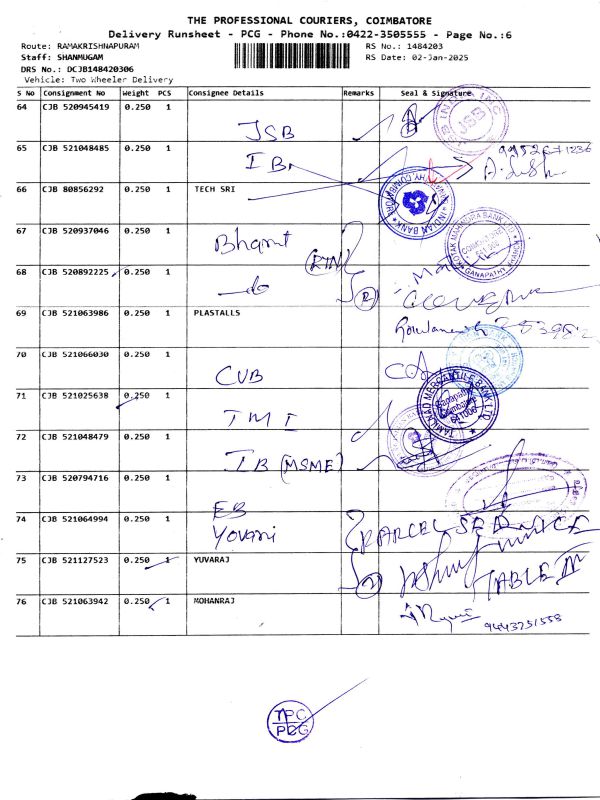 THE PROFESSIONAL COURIERS, COIMBATORE
Delivery Runsheet - PCG - Phone No.:0422-3505555 - Page No.:6
Route: RAMAKRISHNAPURAM RS No.: 1484203
Staff: SHANMUGAM RS Date: 02-Jan-2025
DRS No.: DCJB148420306
Vehicle: Two Wheeler Delivery
S No Consignment No Weight PCS Consignee Details Remarks Seal & Signature
64 CJB 520945419 0.250 1
JSB
JSB
65 CJB 521048485 0.250 1
IB
66 CJB 80856292 0.250 1 TECH SRI
INDIAN BANK
67 CJB 520937046 0.250 1
KOTAK MAHINDRA BANK LTD.
COIMBATORE
GANAPATHY BRANCH
68 CJB 520892225 0.250 1
69 CJB 521063986 0.250 1 PLASTALLS
70 CJB 521066030 0.250 1
CUB
71 CJB 521025638 0.250 1
TMI
TAMILNAD MERCANTILE BANK LTD
Ganapathy
Coimbatore
641006
72 CJB 521048479 0.250 1
IB (MSME)
73 CJB 520794716 0.250 1
EB
74 CJB 521064994 0.250 1
Yovani
PARCEL SERVICE
75 CJB 521127523 0.250 1 YUVARAJ
TABLE
76 CJB 521063942 0.250 1 MOHANRAJ
9443251558
TPC
PCG